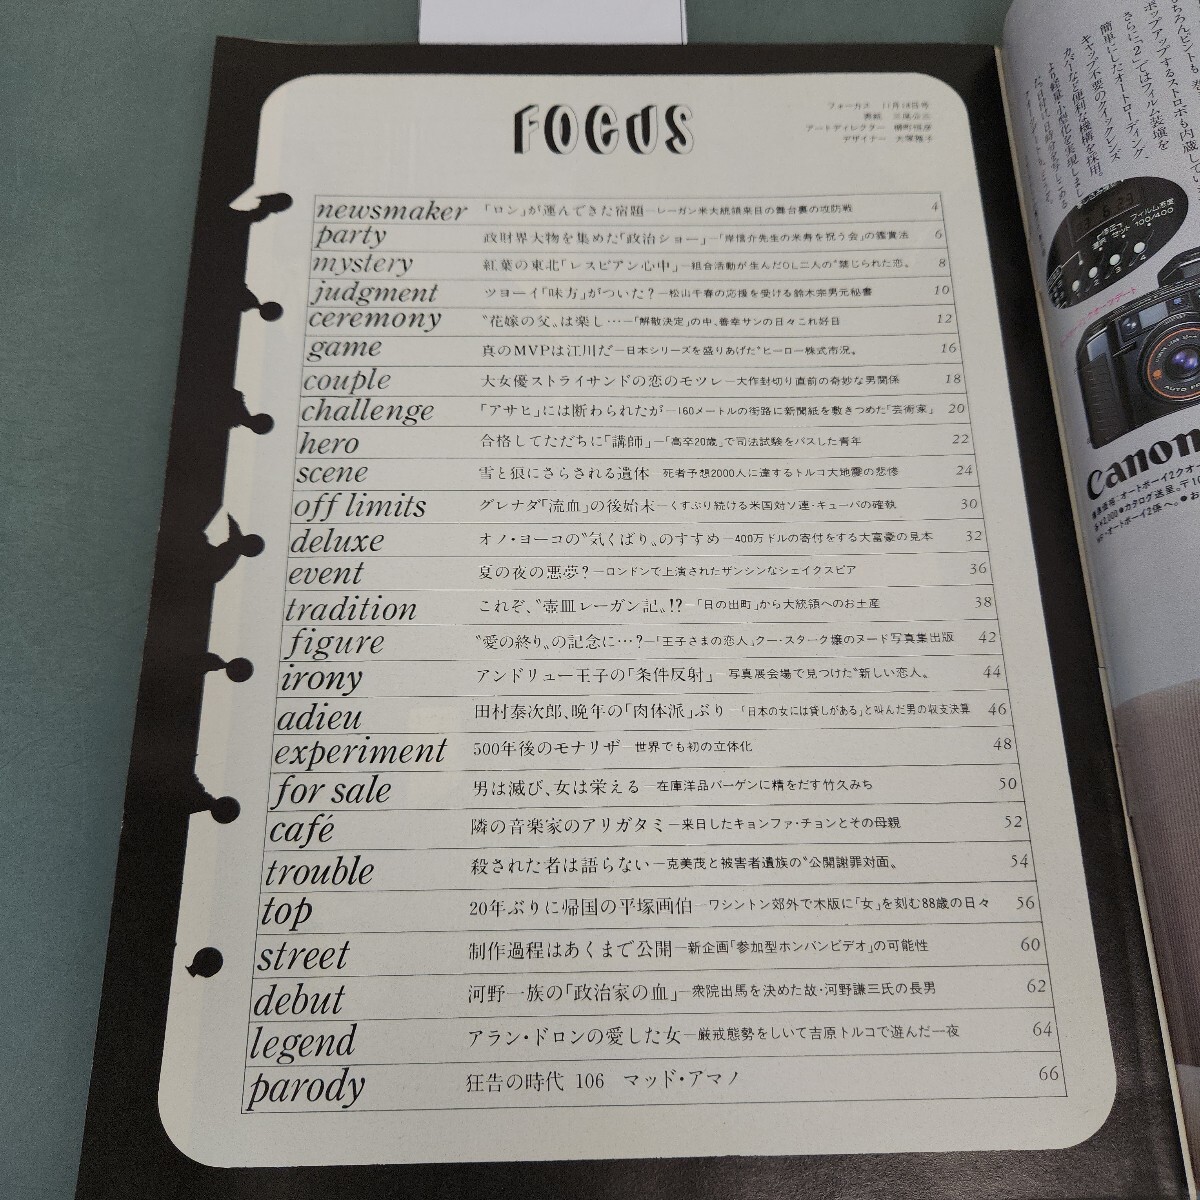 FOCUS
フォーカス 11月18日号
アートディレクター
デザイナー
newsmaker 「ロン」が運んできた宿題―レーガン米大統領来日の舞台裏の攻防戦 4
party 政財界大物を集めた「政治ショー」―「岸信介先生の米寿を祝う会」の鑑賞法 6
mystery 紅葉の東北「レスビアン心中」―組合活動が生んだOL二人の〝禁じられた恋〟 8
judgment ツヨーイ「味方」がついた?―松山千春の応援を受ける鈴木宗男元秘書 10
ceremony 〝花嫁の父〟は楽し…―「解散決定」の中、善幸サンの日々これ好日 12
game 真のMVPは江川だ―日本シリーズを盛りあげた〝ヒーロー株式市況〟 16
couple 大女優ストライサンドの恋のモツレ―大作封切り直前の奇妙な男関係 18
challenge 「アサヒ」には断わられたが―160メートルの街路に新聞紙を敷きつめた「芸術家」 20
hero 合格してただちに「講師」―「高卒20歳」で司法試験をパスした青年 22
scene 雪と狼にさらされる遺体―死者予想2000人に達するトルコ大地震の悲惨 24
off limits グレナダ「流血」の後始末―くすぶり続ける米国対ソ連・キューバの確執 30
deluxe オノ・ヨーコの〝気くばり〟のすすめ―400万ドルの寄付をする大富豪の見本 32
event 夏の夜の悪夢?―ロンドンで上演されたザンシンなシェイクスピア 36
tradition これぞ、〝壺皿レーガン記〟!?―「日の出町」から大統領へのお土産 38
figure 〝愛の終り〟の記念に…?―「王子さまの恋人」クー・スターク嬢のヌード写真集出版 42
irony アンドリュー王子の「条件反射」―写真展会場で見つけた〝新しい恋人〟 44
adieu 田村泰次郎、晩年の「肉体派」ぶり―「日本の女には貸しがある」と叫んだ男の収支決算 46
experiment 500年後のモナリザ―世界でも初の立体化 48
for sale 男は滅び、女は栄える―在庫洋品バーゲンに精をだす竹久みち 50
café 隣の音楽家のアリガタミ―来日したキョンファ・チョンとその母親 52
trouble 殺された者は語らない―克美茂と被害者遺族の〝公開謝罪対面〟 54
top 20年ぶりに帰国の平塚画伯―ワシントン郊外で木版に「女」を刻む88歳の日々 56
street 制作過程はあくまで公開―新企画「参加型ホンバンビデオ」の可能性 60
debut 河野一族の「政治家の血」―衆院出馬を決めた故・河野謙三氏の長男 62
legend アラン・ドロンの愛した女―厳戒態勢をしいて吉原トルコで遊んだ一夜 64
parody 狂告の時代 106 マッド・アマノ 66
ポップアップするストロボも内蔵してい
さらに「2」ではフィルム装填を
簡単にしたオートローディング、
キャップ不要のクイックレンズ
カバーなど便利な機構を採用。
フィルム感度
100/400
AUTO FO
Canon